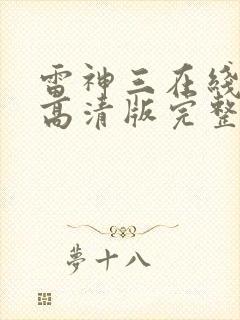 雷神三在线
高清版完整
梦十八